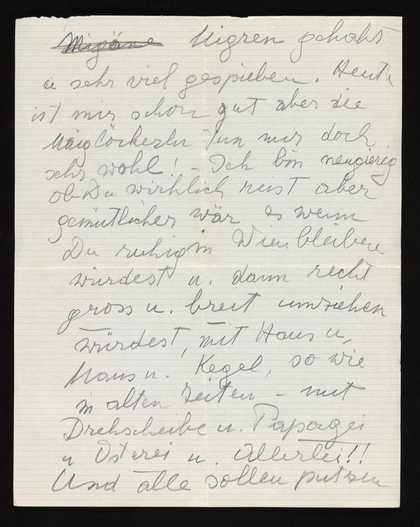 Migräne Migren gehabt
u sehr viel gespieben. Heute
ist mir schon gut aber die
Maiglöckerln tun mir doch
sehr wohl! - Ich bin neugierig
ob Du wirklich reist aber
gemütlicher wär es wenn
Du ruhig in Wien bleiben
würdest u. dann recht
gross u. breit umziehen
würdest, mit Haus u,
Maus u. Kegel, so wie
in alten Zeiten - mit
Drehscheibe u. Papagei
u Osterei u. Allerlei!!
Und alle sollen putzen